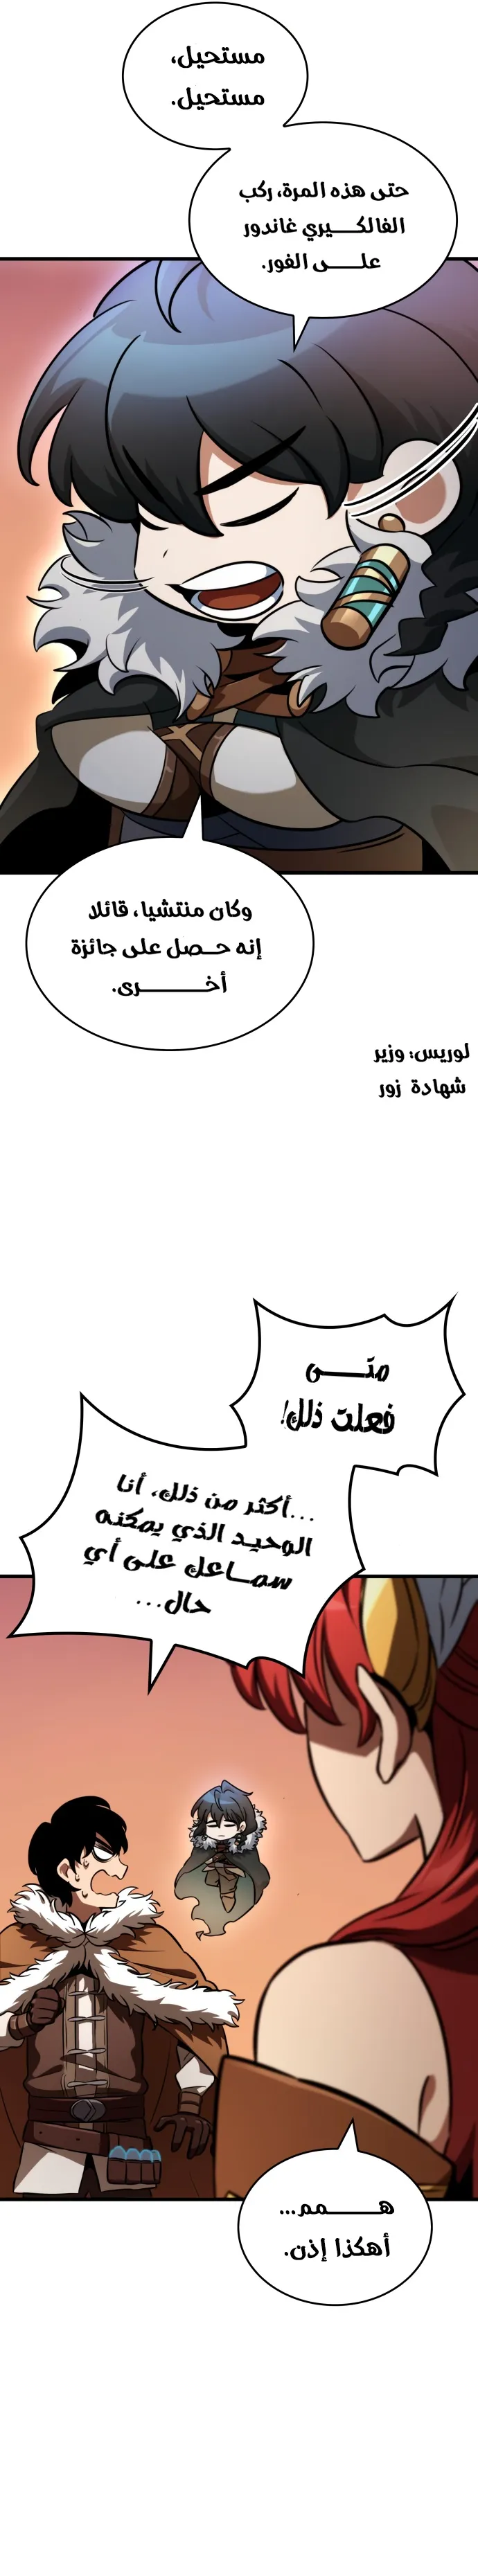 مستحيل،
مستحيل.
حتى هذه المرة، ركب
الفالكيري غاندور
على الفور.
وكان منتشيا، قائلا
إنه حصل على جائزة
أخرى.
لوريس: وزير
شهادة زور
متى
فعلت ذلك!
...أكثر من ذلك، أنا
الوحيد الذي يمكنه
سماعك على أي
حال...
همم...
أهكذا إذن.